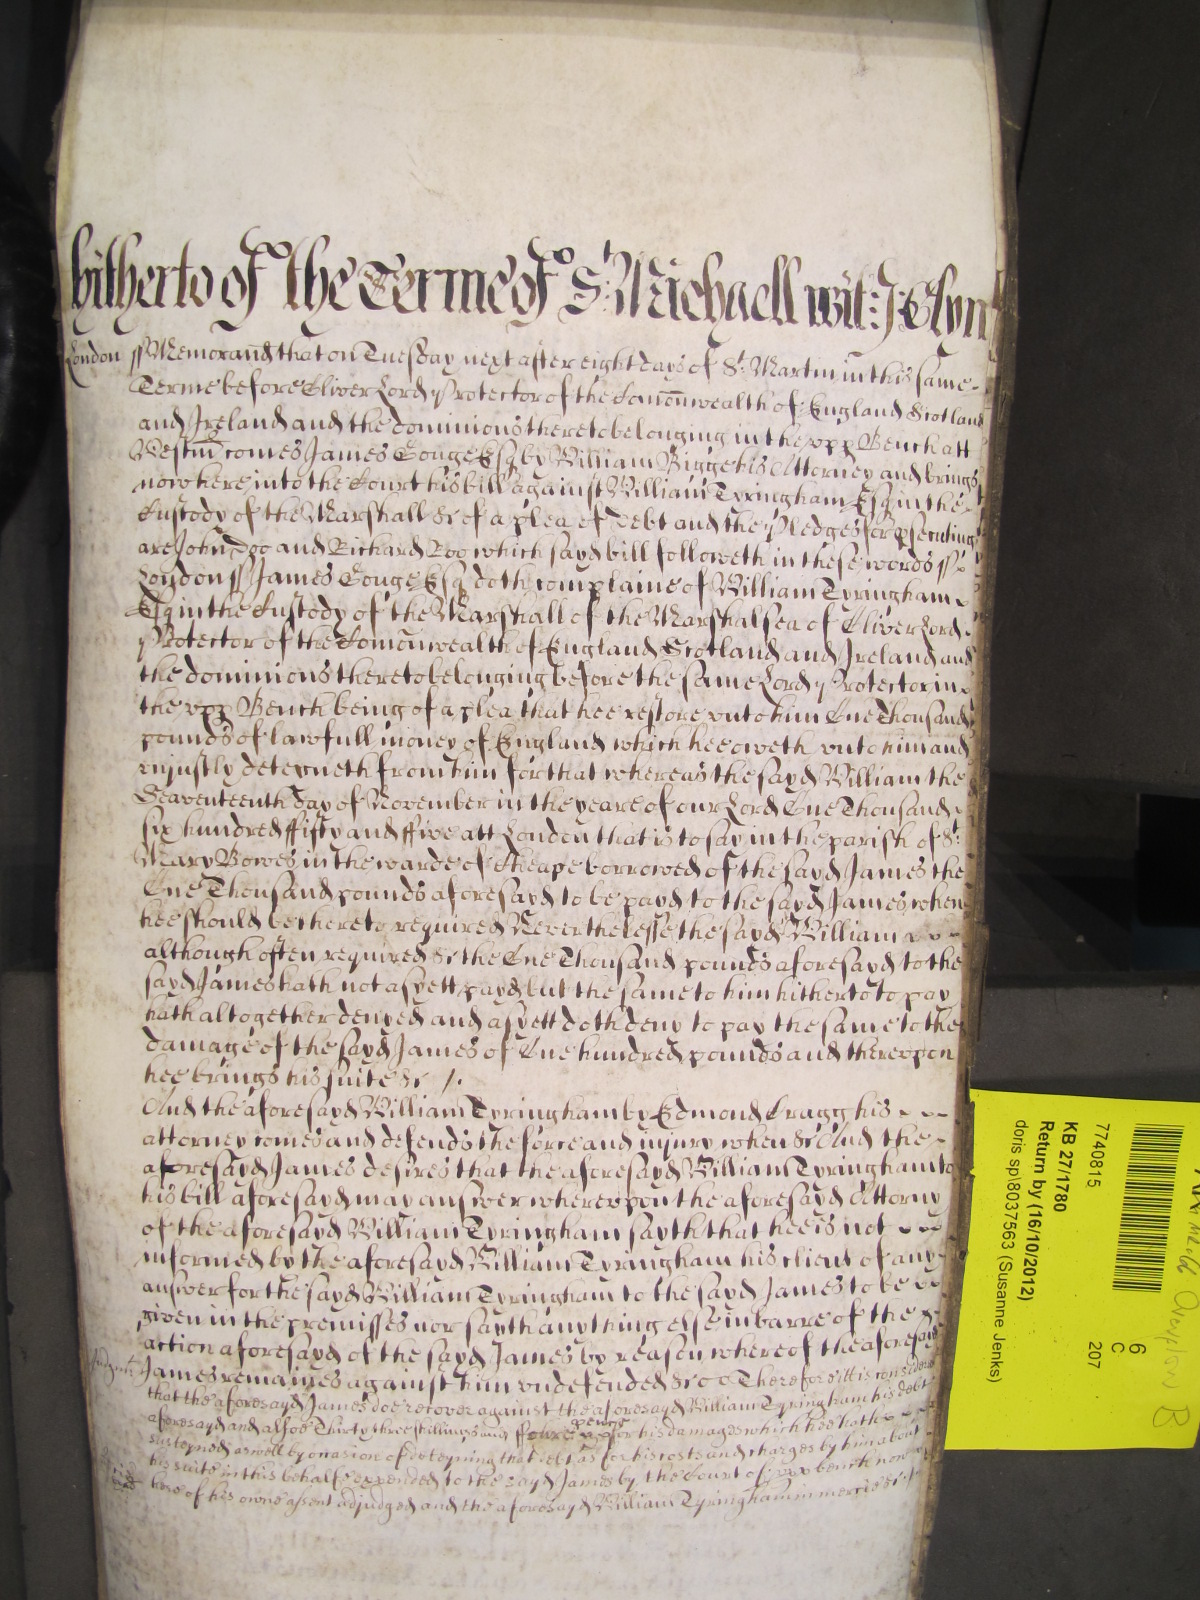 hitherto of the Terme of St. Michaell wit: J: Glyn
London ss Memorand that on Tuesday next after eight dayes of St. Martin in this same
Terme before Oliver Lord Protector of the Comonwealth of England Scotland
and Ireland and the dominions thereto belonging in the vpp Bench att
Westm comes James Gouge Esq by William Bigge his Attorney and brings
now here into the Court his bill against William Tyringham Esq in the
Custody of the Marshall &c of a plea of Debt and the Pledges for psecuting
are John Doo and Richard Roo which sayd bill followeth in these words ss
London ss James Gouge Esq doth complaine of William Tyringham
Esq in the Custody of the Marshall of the Marshalsea of Oliver Lord
Protector of the Comonwealth of England Scotland and Ireland and
the dominions thereto belonging before the same Lord Protector in
the vpp Bench being of a plea that hee restore vnto him One Thousand
pounds of lawfull money of England which hee oweth vnto him and
vnjustly deteyneth from him for that whereas the sayd William the
Seaventeenth day of November in the yeare of our Lord One Thousand
six hundred ffifty and ffive att London that is to say in the parish of St.
Mary Bowes in the warde of Cheape borrowed of the sayd James the
One Thousand pounds aforesayd to be payd to the sayd James when
hee should be thereto required Neverthelesse the sayd William
although often required &c the One Thousand pounds aforesayd to the
sayd James hath not as yett payd but the same to him hitherto to pay
hath altogether denyed and as yett doth deny to pay the same to the
damage of the sayd James of One hundred pounds and therevpon
hee brings his suite &c
And the aforesayd William Tyringham by Edmond Cragg his
attorney comes and defends the force and injury when &c And the
aforesayd James desires that the aforesayd William Tyringham to
his bill aforesayd may answer wherevpon the aforesayd Attorny
of the aforesayd William Tyringham sayth that hee is not
informed by the aforesayd William Tyringham his client of any
answer for the sayd William Tyringham to the sayd James to be
given in the premisses nor sayth any thing else in barre of the
action aforesayd of the sayd James by reason whereof the aforesayd
James remaines against him vndefended &c Therefore itt is considered
that the aforesayd James doe recover against the aforesayd William Tyringham his debt
aforesayd and alsoe Thirty three shillings and foure pence for his damages which hee hath
susteyned aswell by occasion of deteyning that debt as for his costs and charges by him about
his suite in this behalfe expended to the sayd James by the Court of vpp bench now
here of his owne assent adjudged and the aforesayd William Tyringham in mercie &c
7740815
6
C
207
KB 27/1780
Return by (16/10/2012)
doris sp\8037563 (Susanne Jenks)